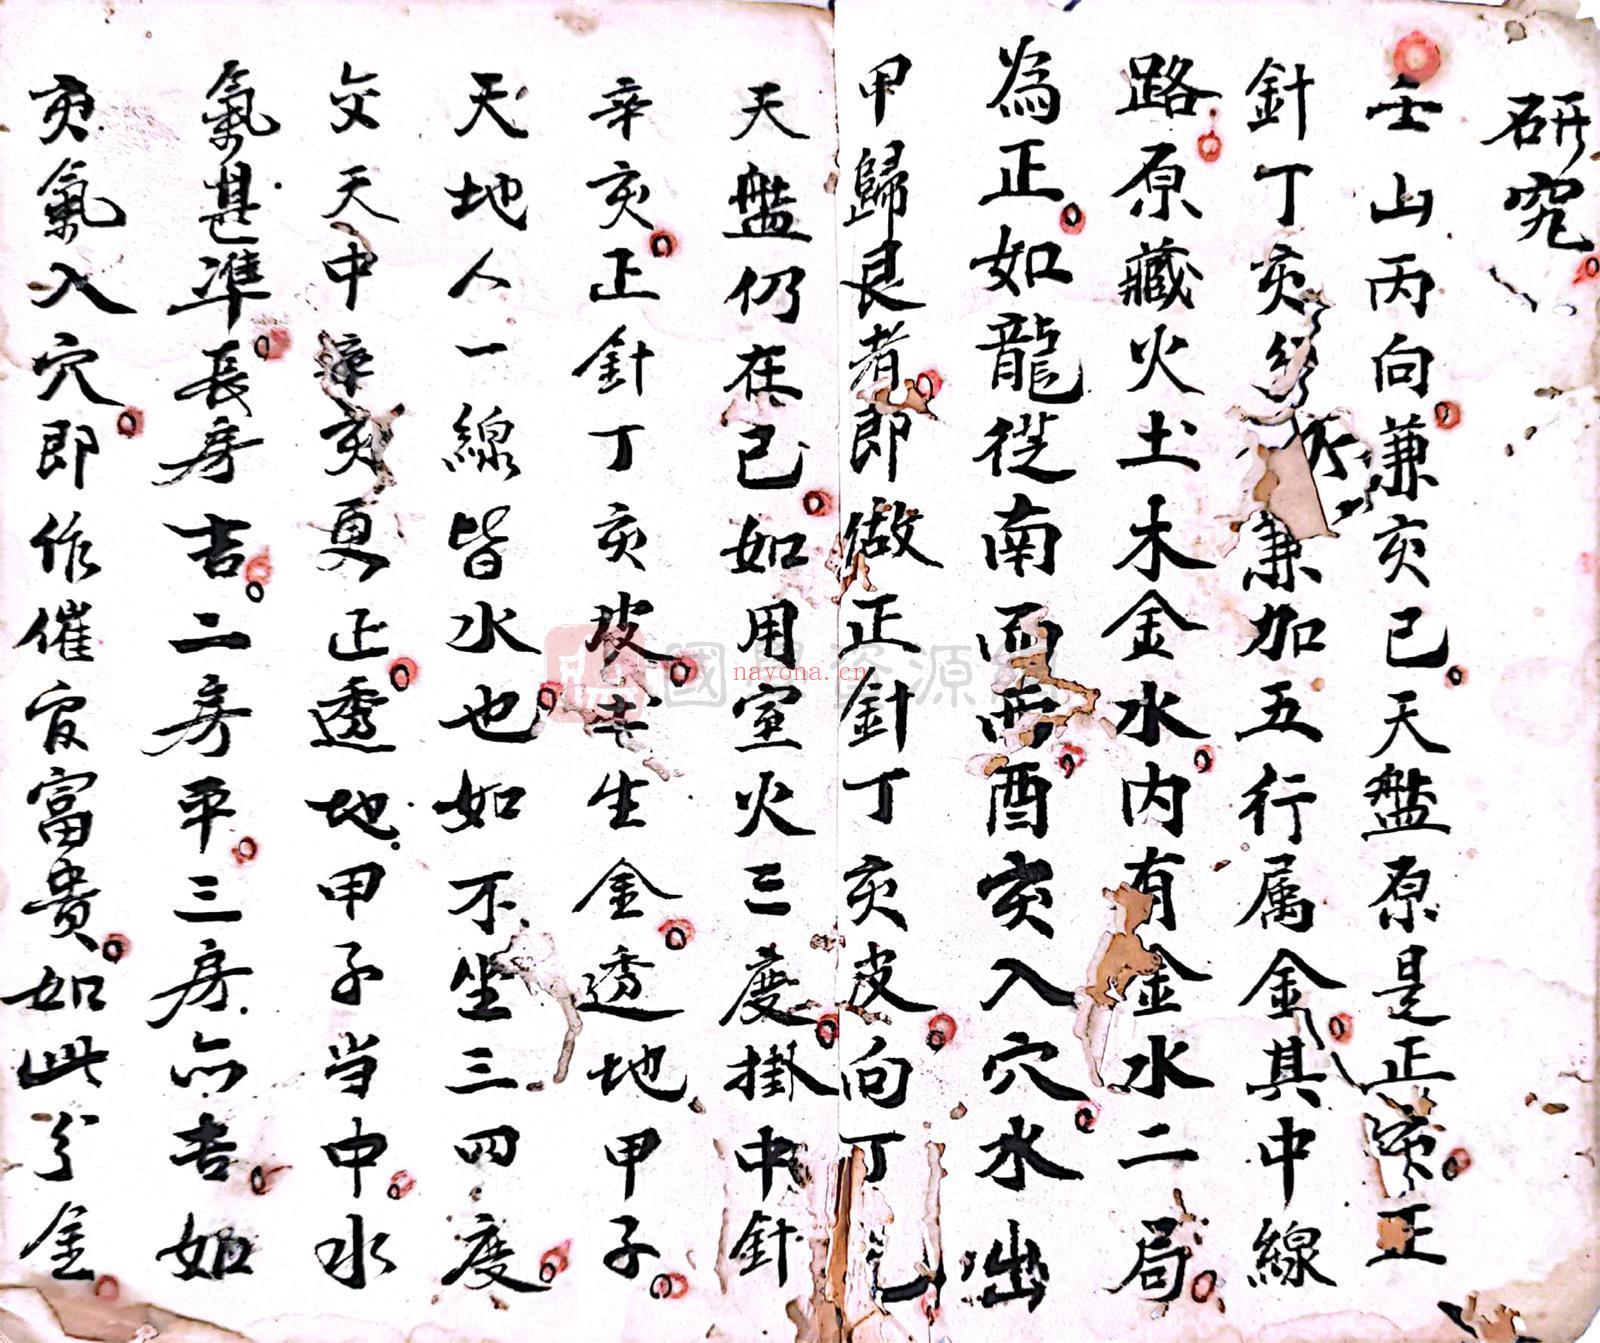 研究
壬山丙向兼亥巳天盤原是正亥正
針丁亥兼加五行属金其中線
路原藏火土木金水內有金水二局
為正如龍從南而西酉亥入穴水出
甲歸艮者即做正針丁亥皮向丁巳
天盤仍在已如用室火三度掛中針
辛亥正針丁亥坡生金透地甲子
天地人一線皆水也如不坐三四度
交天中亥更正透地甲子当中水
氣甚準長房吉二房平三房亦吉如
亥氣入穴即作催官富貴如此分金
國學資源網
nayona.cn